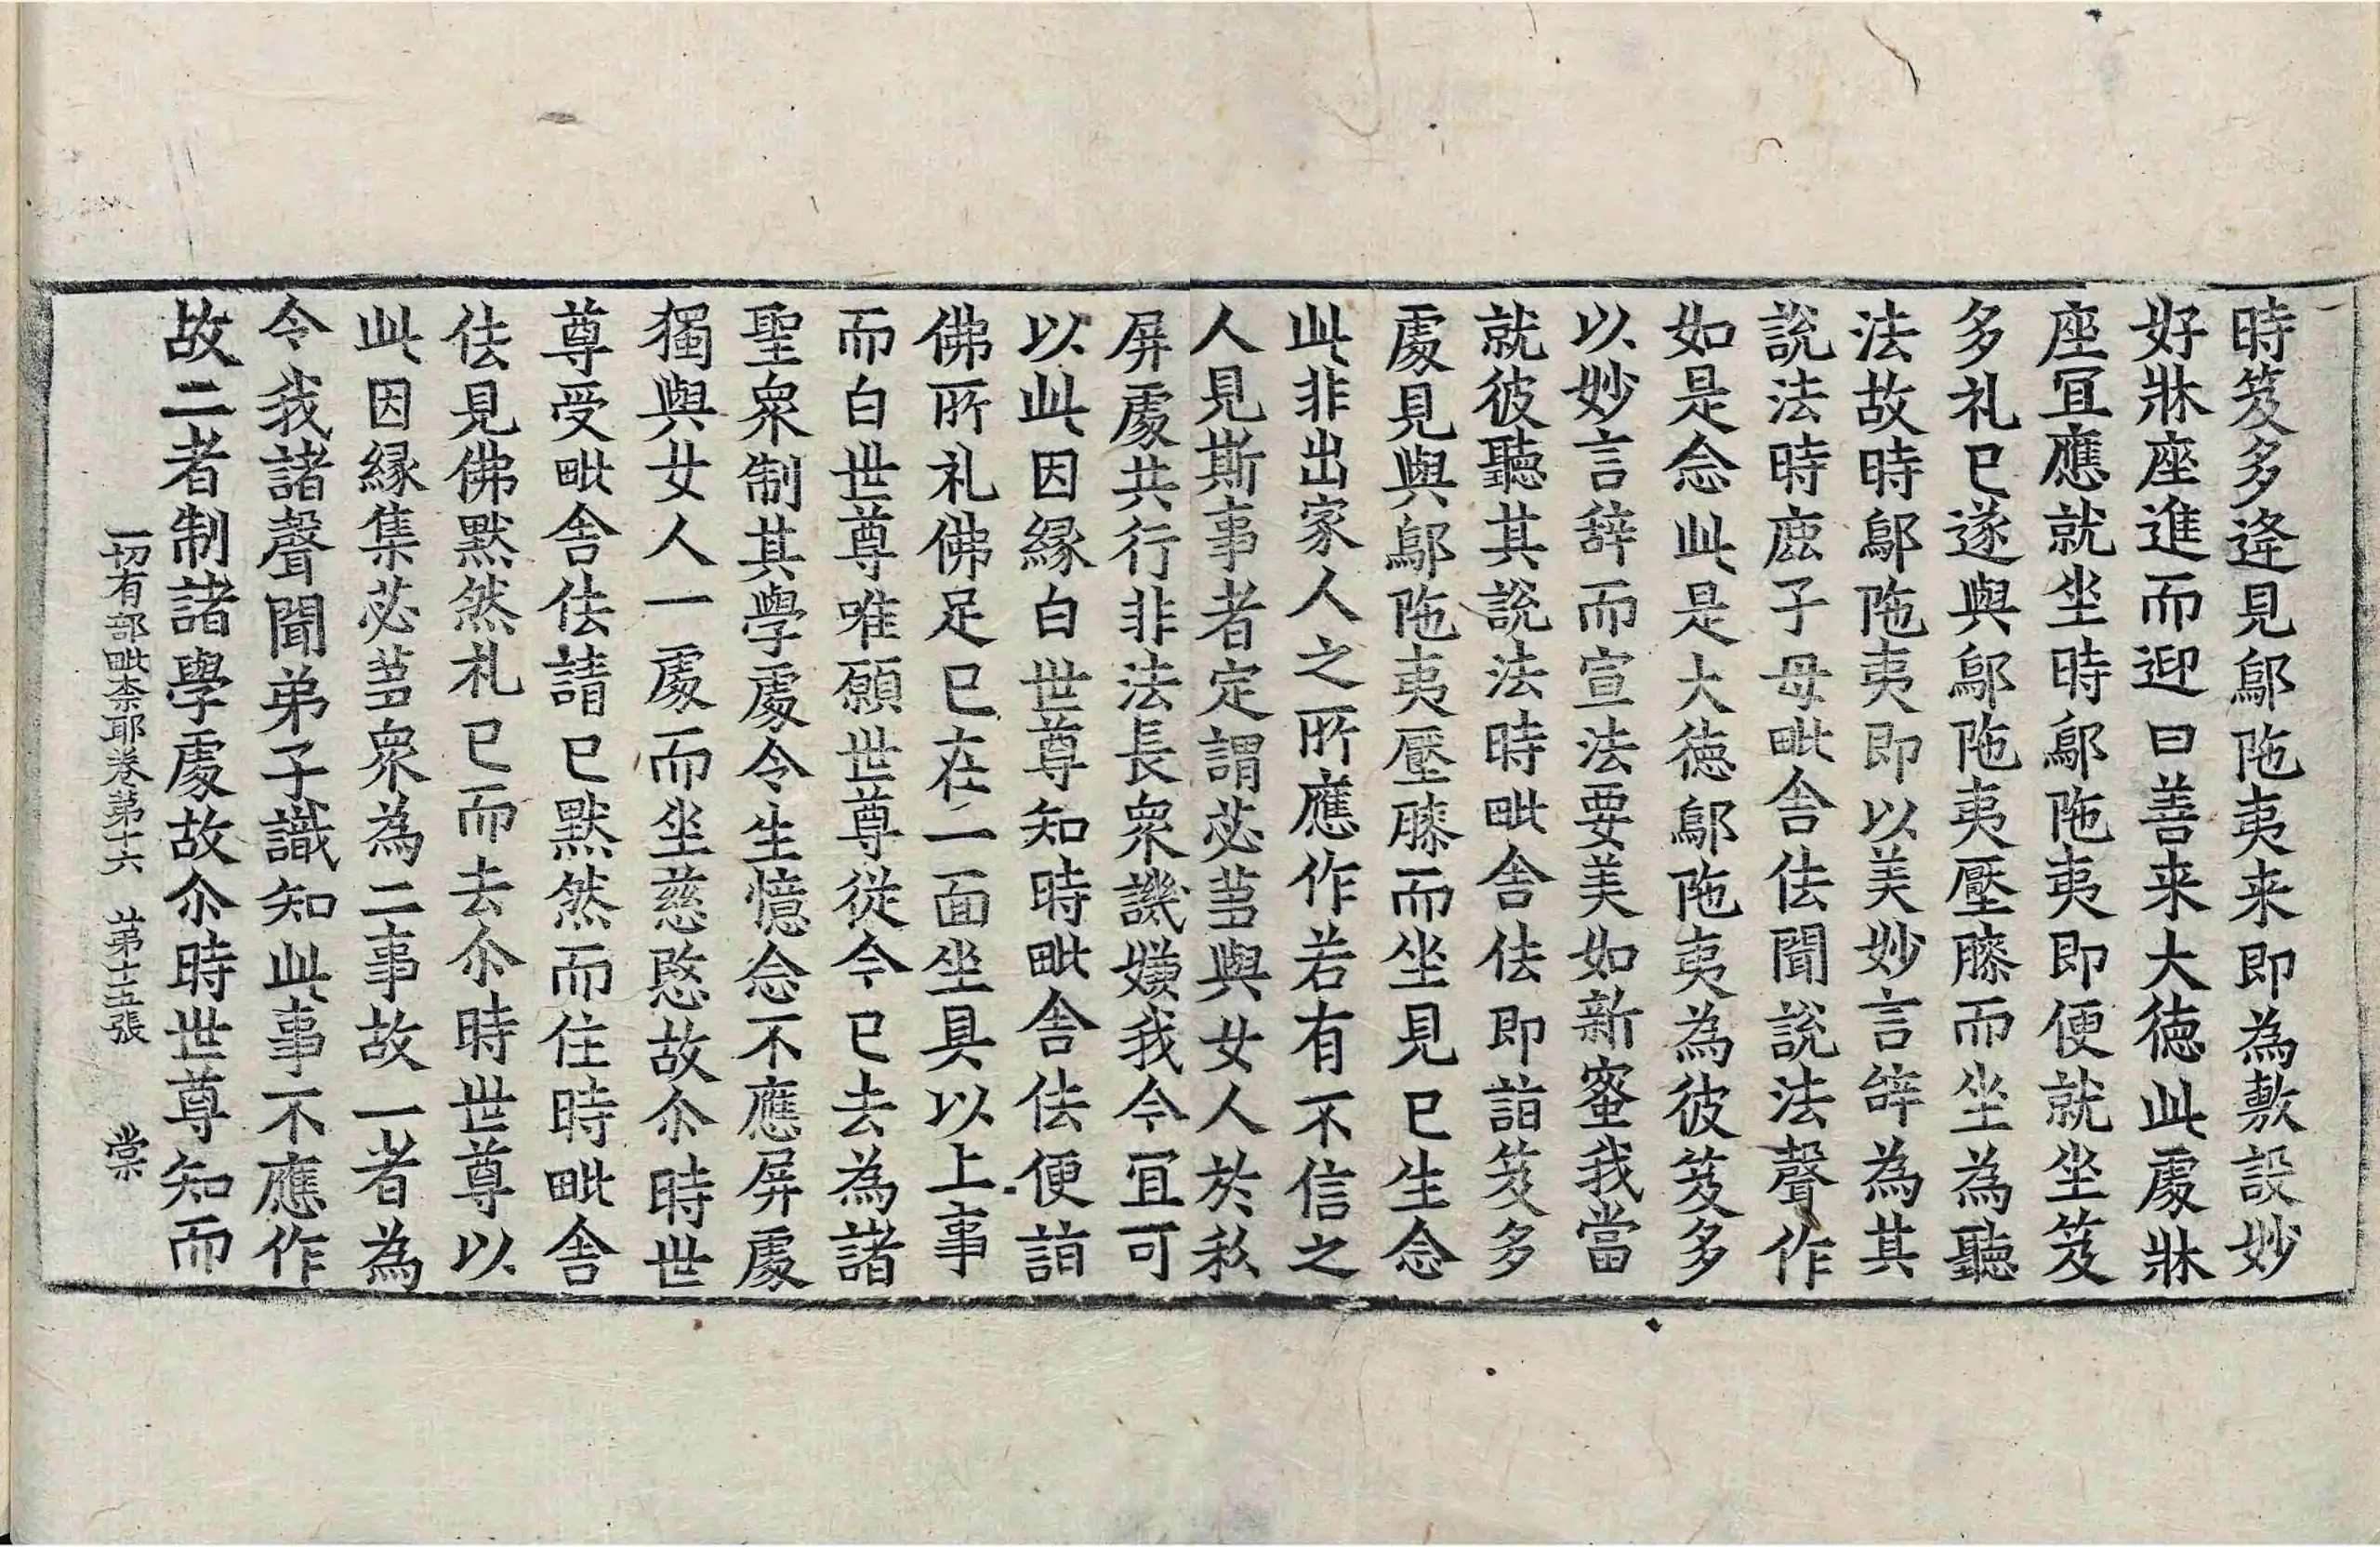 時笈多逢見鄔陁夷来即為敷設妙
好牀座進而迎曰善来大德此處牀
座冝應就坐時鄔陁夷即便就坐笈
多礼已遂與鄔陁夷壓膝而坐為聽
法故時鄔陁夷即以美妙言辝為其
說法時鹿子母毗舍佉聞說法聲作
如是念此是大德鄔陁夷為彼笈多
以妙言辝而宣法要美如新蜜我當
就彼聽其說法時毗舍佉即詣笈多
處見與鄔陁夷壓膝而坐見已生念
此非出家人之所應作若有不信之
人見斯事者定謂苾芻與女人於私
屏處共行非法長衆譏嫌我今冝可
以此因縁白世尊知時毗舍佉便詣
佛所礼佛足已在一面坐具以上事
而白世尊唯願世尊從今已去為諸
聖衆制其學處令生憶念不應屏處
獨與女人一處而坐慈愍故尒時世
尊受毗舍佉請已默然而住時毗舍
佉見佛默然礼已而去尒時世尊以
此因縁集苾芻衆為二事故一者為
令我諸聲聞弟子識知此事不應作
故二者制諸學處故尒時世尊知而
一切有部毗柰耶卷第十六 第十五張 棠